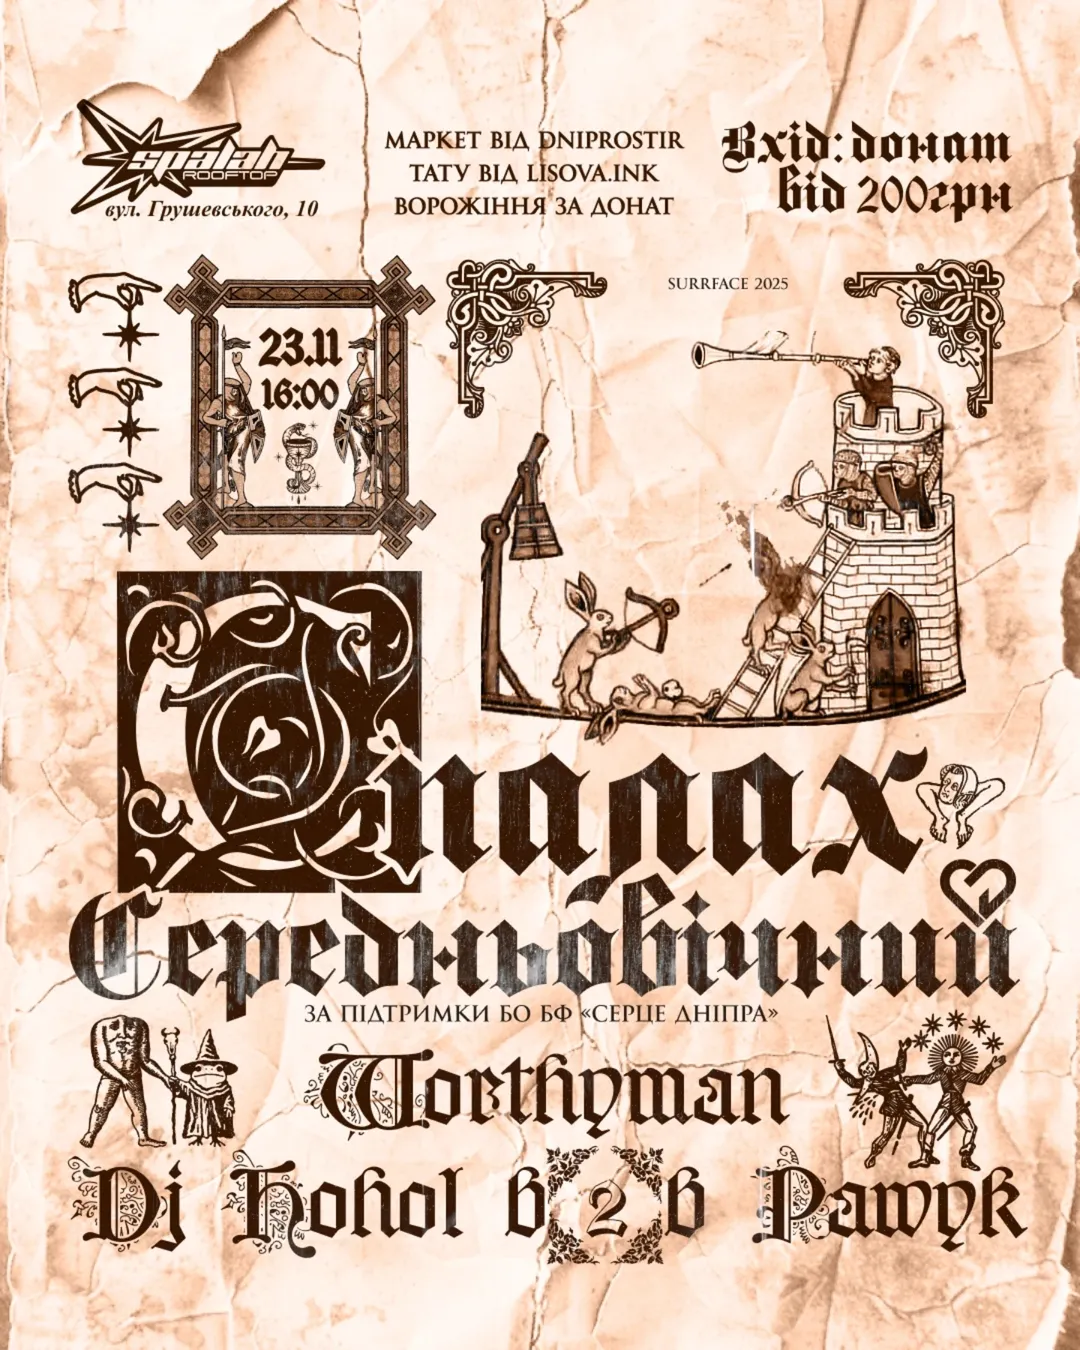 spalah
ROOFTOP
вул. Грушевського, 10
МАРКЕТ ВІД DNIPROSTIR
ТАТУ ВІД LISOVA.INK
ВОРОЖІННЯ ЗА ДОНАТ
Вхід: донат
від 200грн
SURRFACE 2025
23.11
16:00
Спалах
Середньовічний
ЗА ПІДТРИМКИ БО БФ «СЕРЦЕ ДНІПРА»
Worthyman
Dj Hohol b2b Pawyk